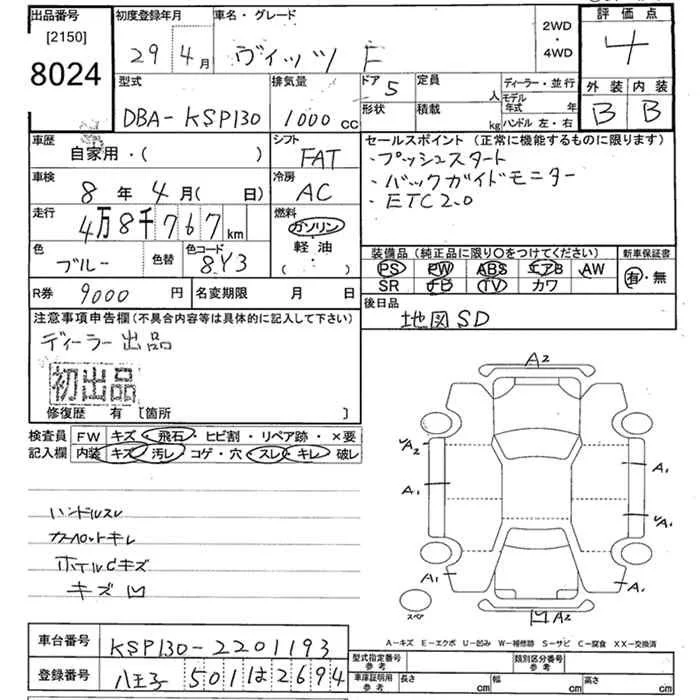 出品番号 初度登録年月 車名・グレード 2WD・4WD 評価点
[2150]
8024 29年4月 ヴィッツ F 4
型式 排気量 ドア 5 定員 人 ディーラー・並行 外装 内装
DBA-KSP130 1000cc 形状 積載 kg モデル年式 年 ハンドル 左・右 B B
車歴 自家用・( ) シフト FAT
車検 8年4月( 日) 冷房 AC
走行 4万8千767km 燃料 ガソリン・軽油・( )
色 ブルー 色替 色コード 8Y3
R券 9000円 名変期限 月 日
セールスポイント(正常に機能するものに限ります)
・プッシュスタート
・バックガイドモニター
・ETC2.0
装備品(純正品に限り○をつけてください) 新車保証書
PS PW ABS エアB AW 有・無
SR ナビ TV カワ
後日品
地図SD
注意事項申告欄(不具合内容等は具体的に記入して下さい)
ディーラー出品
初出品
修復歴 有 [箇所 ]
検査員記入欄 FW キズ・飛石・ヒビ割・リペア跡・×要
内装 キズ・汚レ・コゲ・穴・スレ・キレ・破レ
ハンドルスレ
カーペットキレ
ホイルCキズ
キズ凹
A2
A2 A1
A1 A1
A1 A1
スペア A2
A-キズ E-エクボ U-凹み W-補修跡 S-サビ C-腐食 XX-交換済
車台番号 KSP130-2201193
登録番号 八王子 501 は 2694
型式指定番号 参考 類別区分番号 参考
車庫証明用 参考 長さ cm 幅 cm 高さ cm